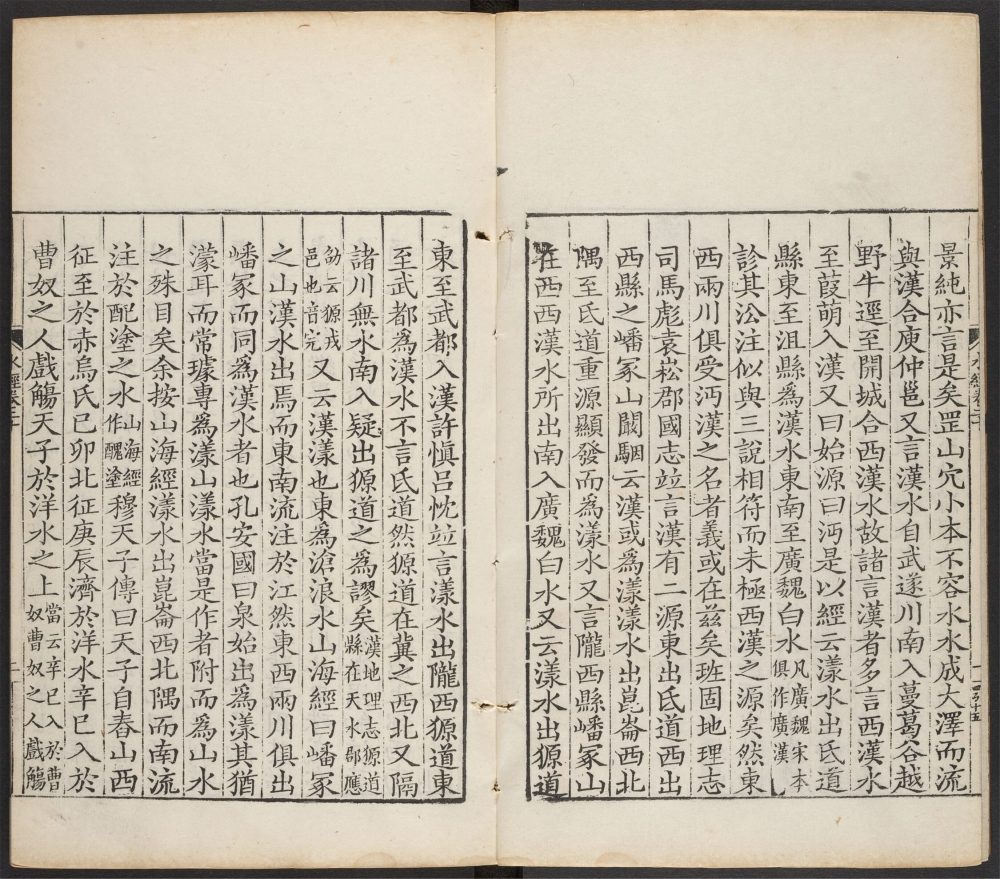 景純亦言是矣罡山穴小本不容水水成大澤而流
與漢合庾仲邕又言漢水自武遂川南入蔓葛谷越
野牛逕至關城合西漢水故諸言漢者多言西漢水
至葭萌入漢又曰始源曰沔是以經云漾水出氐道
縣東至沮縣爲漢水東南至廣魏白水凡廣魏宋本俱作廣漢
診其沿注似與三說相符而未極西漢之源矣然東
西兩川俱受沔漢之名者義或在茲矣班固地理志
司馬彪袁崧郡國志竝言漢有二源東出氐道西出
西縣之嶓冢山闞駰云漢或爲漾漾水出崑崙西北
隅至氐道重源顯發而爲漾水又言隴西縣嶓冢山
在西西漢水所出南入廣魏白水又云漾水出獂道
東至武都入漢許慎呂忱竝言漾水出隴西獂道東
至武都爲漢水不言氐道然獂道在冀之西北又隔
諸川無水南入疑出獂道之爲謬矣漢地理志獂道縣在天水郡應
劭云獂戎邑也音完又云漢漾也東爲滄浪水山海經曰嶓冢
之山漢水出焉而東南流注於江然東西兩川俱出
嶓冢而同爲漢水者也孔安國曰泉始出爲漾其猶
濛耳而常璩專爲漾山漾水當是作者附而爲山水
之殊目矣余按山海經漾水出崑崙西北隅而南流
注於配塗之水山海經作醜塗穆天子傳曰天子自舂山西
征至於赤烏氏己卯北征庚辰濟於洋水辛巳入於
曹奴之人戲觴天子於洋水之上當云辛巳入於曹奴曹奴之人戲觴
水經卷二十